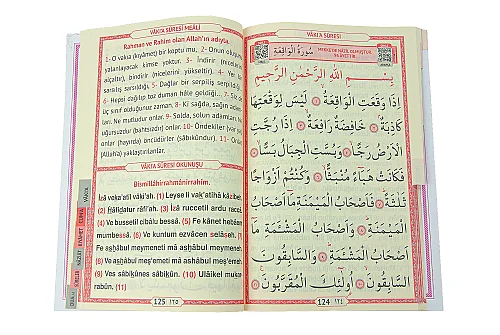 VÂKIA SÛRESİ MEÂLİ
Rahman ve Rahîm olan Allah'ın adıyla.
1- O vakıa (kıyâmet) bir koptu mu, 2- Onun oluşunu
yalanlayacak kimse yoktur. 3- İndirir (nicelerini
alçaltır), bindirir (nicelerini yükseltir). 4- Yer bir
sarsılış sarsıldığı 5- Dağlar bir serpiliş serpildiği,
6- Hepsi dağılıp toz duman hâle geldiği... 7- Siz de
üç sınıf olduğunuz zaman. 8- Ki sağda, sağın adam-
ları. Ne mutludur onlar. 9- Solda, solun adamları, ne
uğursuzdur (bahtsızdır) onlar. 10- Öndekiler (var ya)
onlar (hayırda) öncüdürler (sâbıkûndur). 11- Onlar
(Allah'a) yaklaştırılanlar.
VÂKIA SÛRESİ OKUNUŞU
Bismillâhirrahmânirrahîm.
İzâ veka'atil vâkı'ah. (1) Leyse li vak'atihâ kâzibeh.
(2) Hâfidatur râfi'ah. (3) İzâ ruccetil ardu raccâ.
(4) Ve bussetil cibâlu bessâ. (5) Fe kânet hebâen
mumbessâ. (6) Ve kuntum ezvâcen selâseh. (7)
Fe ashâbul meymeneti mâ ashâbul meymeneh. (8)
Ve ashâbul meş'emeti mâ ashâbul meş'emeh. (9)
Ves sâbikûnes sâbikûn. (10) Ulâikel mukar-
rabûn. (11)
125 ١٢٥
VÂKIA
CUMA
KIYÂMET
VÂKIA SÛRESİ
سُورَةُ الْوَاقِعَةِ
MEKKE'DE NÂZİL OLMUŞTUR
بِسْمِ اللّٰهِ الرَّحْمٰنِ الرَّحِيمِ
اِذَا وَقَعَتِ الْوَاقِعَةُ ۝ لَيْسَ لِوَقْعَتِهَا
كَاذِبَةٌ ۝ خَافِضَةٌ رَافِعَةٌ ۝ اِذَا رُجَّتِ
الْاَرْضُ رَجًّا ۝ وَبُسَّتِ الْجِبَالُ بَسًّا ۝
فَكَانَتْ هَبَاءً مُنْبَثًّا ۝ وَكُنْتُمْ اَزْوَاجًا
ثَلٰثَةً ۝ فَاَصْحَابُ الْمَيْمَنَةِ مَا اَصْحَابُ
الْمَيْمَنَةِ ۝ وَاَصْحَابُ الْمَشْئَمَةِ مَا
اَصْحَابُ الْمَشْئَمَةِ ۝ وَالسَّابِقُونَ
السَّابِقُونَ ۝ اُولٰئِكَ الْمُقَرَّبُونَ ۝
124 ١٢٤